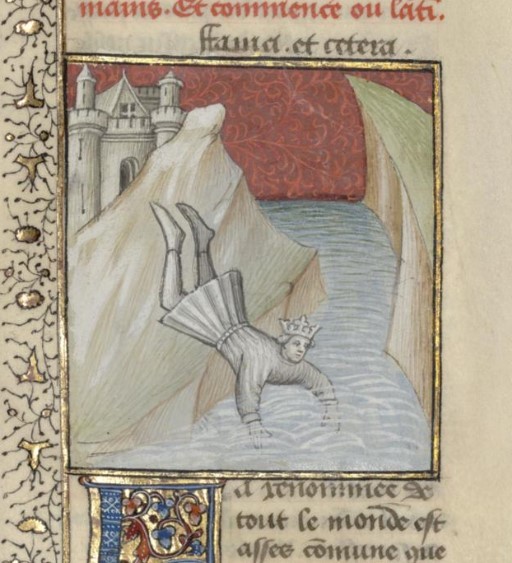 mains. Et commence ou lati.
ffama. et cetera.
La renommee de
tout le monde est
asses cōmune que